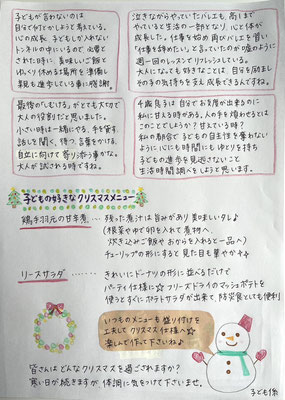 子どもが言わないのは
自分で何とかしようと考えている。
心の成長。子どもしか入れない
トンネルの中にいるので必要と
された時に、美味しいご飯と
ゆっくり休める場所を準備し
親も進歩している事に感謝。
泣きながらやっていたバレエも、高1まで
やっていると生活の一部となり、心と体が
成長した。仕事を始め再びバレエを習い
「仕事を辞めたい」と言っていたのが嘘のように
週一回のレッスンでリフレッシュしている。
大人になっても好きなことは、自分を励まし
その子の気持ちを支え成長できるんですね。
最後の「しむける」がとても大切で
大人の役割だと思いました。
小さい時は一緒にやる、手を貸す
話しも聞く、待つ、言葉をかける
自立に向けて寄り添う事かな。
大人が試される時ですね。
千歳良子は自分でお支度が出来るのに
私に甘える時がある。人の手を煩わせるとは
このことでしょうか？甘えている時？
私の都合で子どもの自主性を奪わない
ように心にも時間にもゆとりを持ち
子どもの進歩を見逃さないこと
生活時間調べをしようと思います。
子どもの好きなクリスマスメニュー
鶏手羽元の甘辛煮・・・残った煮汁は旨みがあり美味しいヨ♪
(根菜やゆで卵を入れて煮物へ、
炊き込みご飯や おからを入れると一品へ)
チューリップの形にすると見た目も華やか
リースサラダ・・・きれいにドーナツの形に並べるだけで
パーティ仕様に☆ フリーズドライのマッシュポテトを
使うとすぐにポテトサラダが出来て、防災食としても便利
いつものメニューも盛り付けを
工夫してクリスマス仕様へ☆
楽しんで作って下さいね♪
皆さんはどんなクリスマスを過ごされますか？
寒い日が続きますが、体調に気をつけて下さいませ。
子ども係